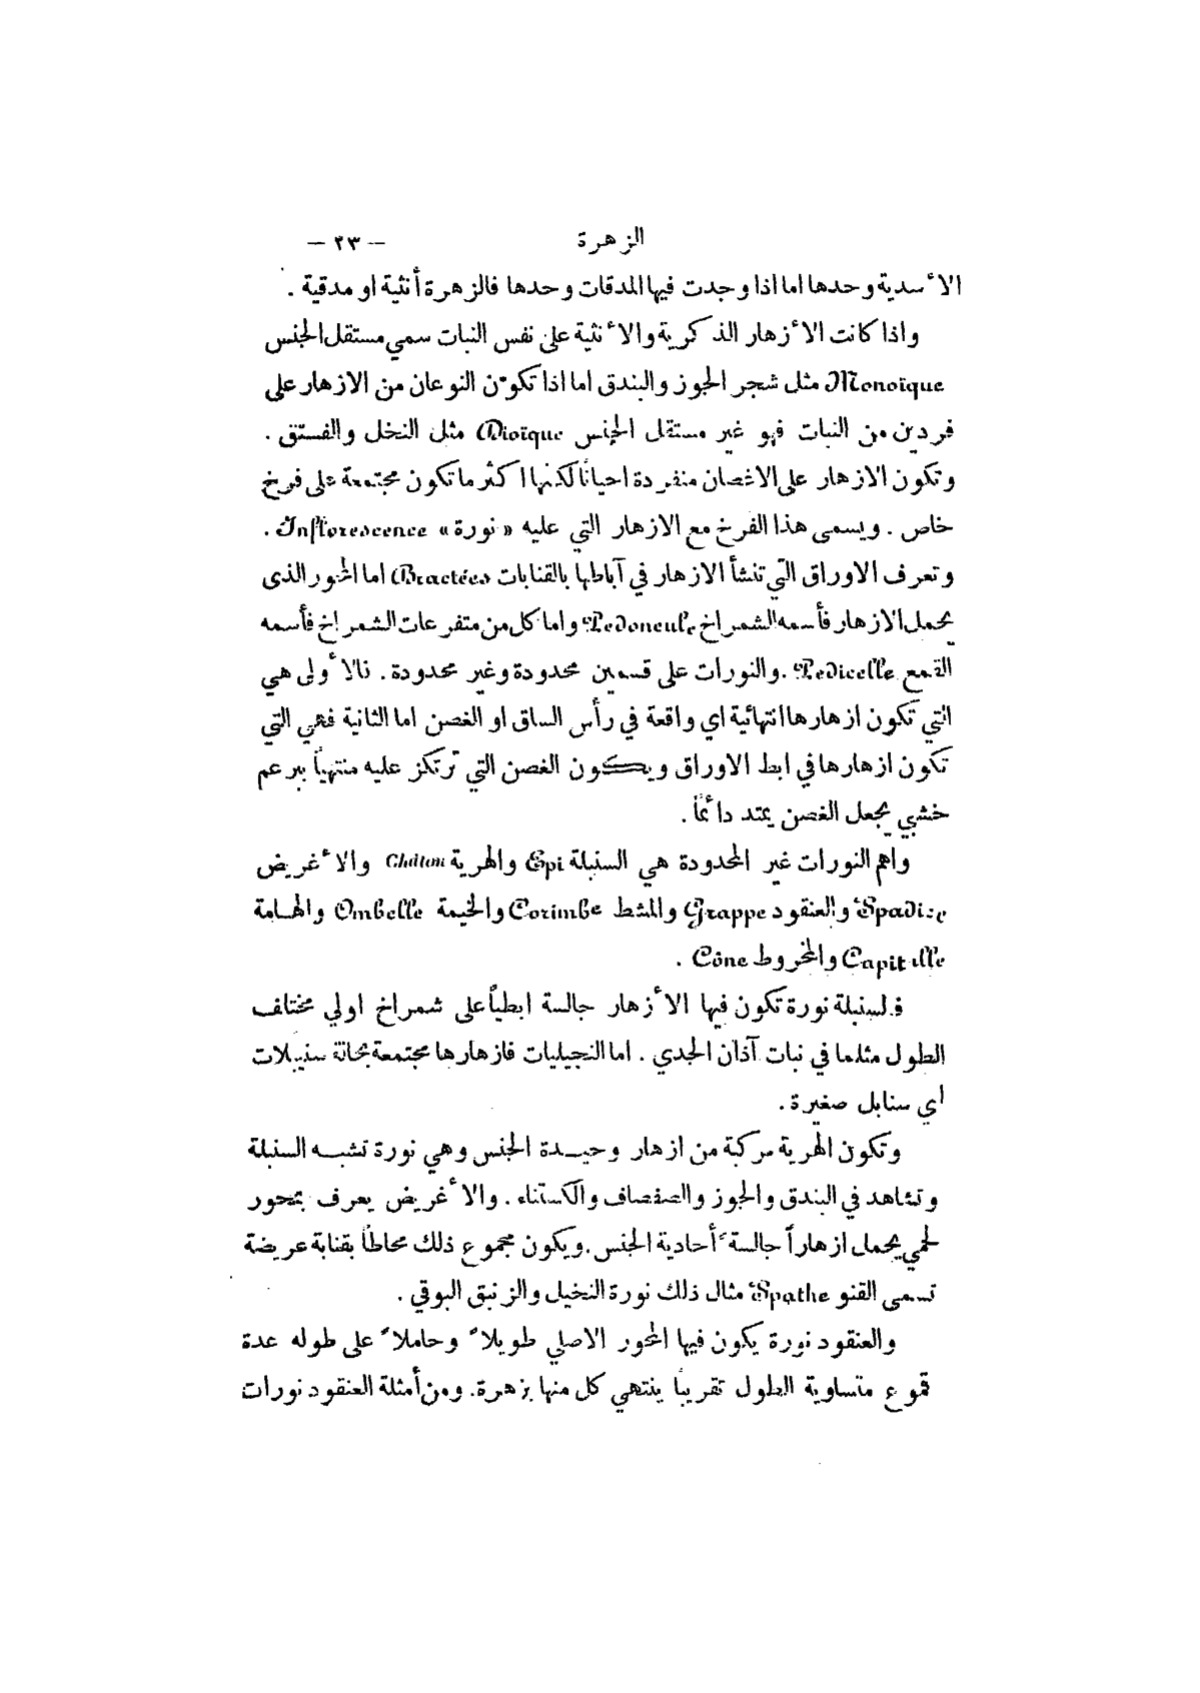 الزهرة — ٢٣ —
الأسدية وحدها اما اذا وجدت فيها المدقات وحدها فالزهرة أنثية او مدقية .
واذا كانت الأزهار الذكرية والأنثية على نفس النبات سمي مستقل الجنس
Monoïque مثل شجر الجوز والبندق اما اذا تكوّن النوعان من الازهار على
فردين من النبات فهو غير مستقل الجنس Dioïque مثل النخل والفستق .
وتكون الازهار على الاغصان منفردة احياناً لكنها اكثر ما تكون مجتمعة على فرخ
خاص . ويسمى هذا الفرخ مع الازهار التي عليه « نورة » Inflorescence .
وتعرف الاوراق التي تنشأ الازهار في آباطها بالقنابات Bractées اما المحور الذى
يحمل الازهار فأسمه الشمراخ Pedoncule واما كل من متفرعات الشمراخ فأسمه
القمع Pedicelle . والنورات على قسمين محدودة وغير محدودة . فالأولى هي
التي تكون ازهارها انتهائية اي واقعة في رأس الساق او الغصن اما الثانية فهي التي
تكون ازهارها في ابط الاوراق ويكون الغصن التي ترتكز عليه منتهياً ببرعم
خشبي يجعل الغصن يمتد دائماً .
واهم النورات غير المحدودة هي السنبلة Epi والهرية Châton والأغريض
Spadice والعنقود Grappe والمشط Corimbe والخيمة Ombelle والهامة
Capitulle والمخروط Cône .
فالسنبلة نورة تكون فيها الأزهار جالسة ابطياً على شمراخ اولي مختلف
الطول مثلما في نبات آذان الجدي . اما النجيليات فازهارها مجتمعة بحالة سنيبلات
اي سنابل صغيرة .
وتكون الهرية مركبة من ازهار وحيدة الجنس وهي نورة تشبه السنبلة
وتشاهد في البندق والجوز والصفصاف والكستناء . والأغريض يعرف بمحور
لحمي يحمل ازهاراً جالسةً أحادية الجنس . ويكون مجموع ذلك محاطاً بقنابة عريضة
تسمى القنو Spathe مثال ذلك نورة النخيل والزنبق البوقي .
والعنقود نورة يكون فيها المحور الاصلي طويلاً وحاملاً على طوله عدة
قموع متساوية الطول تقريباً ينتهي كل منها بزهرة . ومن أمثلة العنقود نورات